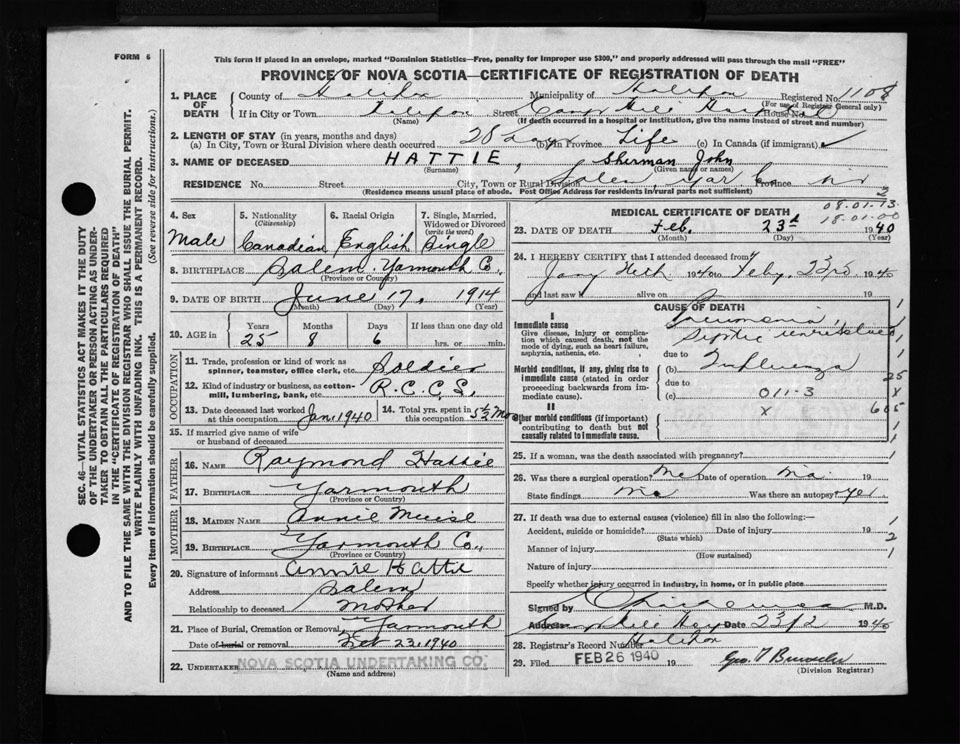 FORM 6
This form if placed in an envelope, marked "Dominion Statistics—Free, penalty for improper use $300," and properly addressed will pass through the mail "FREE"
PROVINCE OF NOVA SCOTIA—CERTIFICATE OF REGISTRATION OF DEATH
SEC. 46—VITAL STATISTICS ACT MAKES IT THE DUTY
OF THE UNDERTAKER OR PERSON ACTING AS UNDER-
TAKER TO OBTAIN ALL THE PARTICULARS REQUIRED
IN THE "CERTIFICATE OF REGISTRATION OF DEATH"
AND TO FILE THE SAME WITH THE DIVISION REGISTRAR WHO SHALL ISSUE THE BURIAL PERMIT.
WRITE PLAINLY WITH UNFADING INK. THIS IS A PERMANENT RECORD.
Every item of information should be carefully supplied. (See reverse side for instructions.)
1. PLACE OF DEATH
County of Halifax Municipality of Halifax Registered No. 1108
(For use of Registrar General only)
If in City or Town Halifax Street Camp Hill Hospital House No.
(Name) (If death occurred in a hospital or institution, give the name instead of street and number)
2. LENGTH OF STAY (in years, months and days)
(a) In City, Town or Rural Division where death occurred 28 (b) In Province Life (c) In Canada (if immigrant)
3. NAME OF DECEASED HATTIE, Sherman John
(Surname) (Given name or names)
RESIDENCE No. Street City, Town or Rural Division Salem, Yar Co. Province N.S.
(Residence means usual place of abode. Post Office Address for residents in rural parts not sufficient)
4. Sex
Male
5. Nationality
(Citizenship)
Canadian
6. Racial Origin
English
7. Single, Married,
Widowed or Divorced
(write the word)
Single
8. BIRTHPLACE Salem Yarmouth Co.,
(Province or Country)
9. DATE OF BIRTH June 17, 1914
(Month) (Day) (Year)
10. AGE in
Years Months Days If less than one day old
25 8 6 hrs. or min.
OCCUPATION
11. Trade, profession or kind of work as
spinner, teamster, office clerk, etc. Soldier
12. Kind of industry or business, as cotton-
mill, lumbering, bank, etc. R.C.C.S.
13. Date deceased last worked
at this occupation Jan 1940
14. Total yrs. spent in
this occupation 5½ Mos
15. If married give name of wife
or husband of deceased
FATHER
16. NAME Raymond Hattie
17. BIRTHPLACE Yarmouth
(Province or Country)
MOTHER
18. MAIDEN NAME Annie Muise
19. BIRTHPLACE Yarmouth Co.,
(Province or Country)
20. Signature of informant Annie Hattie
Address Salem
Relationship to deceased Mother
21. Place of Burial, Cremation or Removal Yarmouth
Date of burial or removal Feb 23 1940
22. UNDERTAKER NOVA SCOTIA UNDERTAKING CO.
(Name and address)
MEDICAL CERTIFICATE OF DEATH
08-01-13
18-01-00
23. DATE OF DEATH Feb. 23rd 1940
(Month) (Day) (Year)
24. I HEREBY CERTIFY that I attended deceased from
1940 to Feby. 23rd 1940
and last saw h alive on 19
CAUSE OF DEATH
I
Immediate cause
Give disease, injury or complica-
tion which caused death, not the
mode of dying, such as heart failure,
asphyxia, asthenia, etc.
Pneumonia,
Septic
due to
Morbid conditions, if any, giving rise to
immediate cause (stated in order
proceeding backwards from im-
mediate cause).
(b) Influenza
due to
(c) 011-3
II
Other morbid conditions (if important)
contributing to death but not
causally related to immediate cause.
25. If a woman, was the death associated with pregnancy?
26. Was there a surgical operation? No Date of operation
State findings Was there an autopsy? yes
27. If death was due to external causes (violence) fill in also the following:—
Accident, suicide or homicide? Date of injury 19
(State which)
Manner of injury
(How sustained)
Nature of injury
Specify whether injury occurred in industry, in home, or in public place
Signed by M.D.
Address Camp Hill Hosp Date 23/2 1940
28. Registrar's Record Number Halifax
29. Filed FEB 26 1940 19
(Division Registrar)